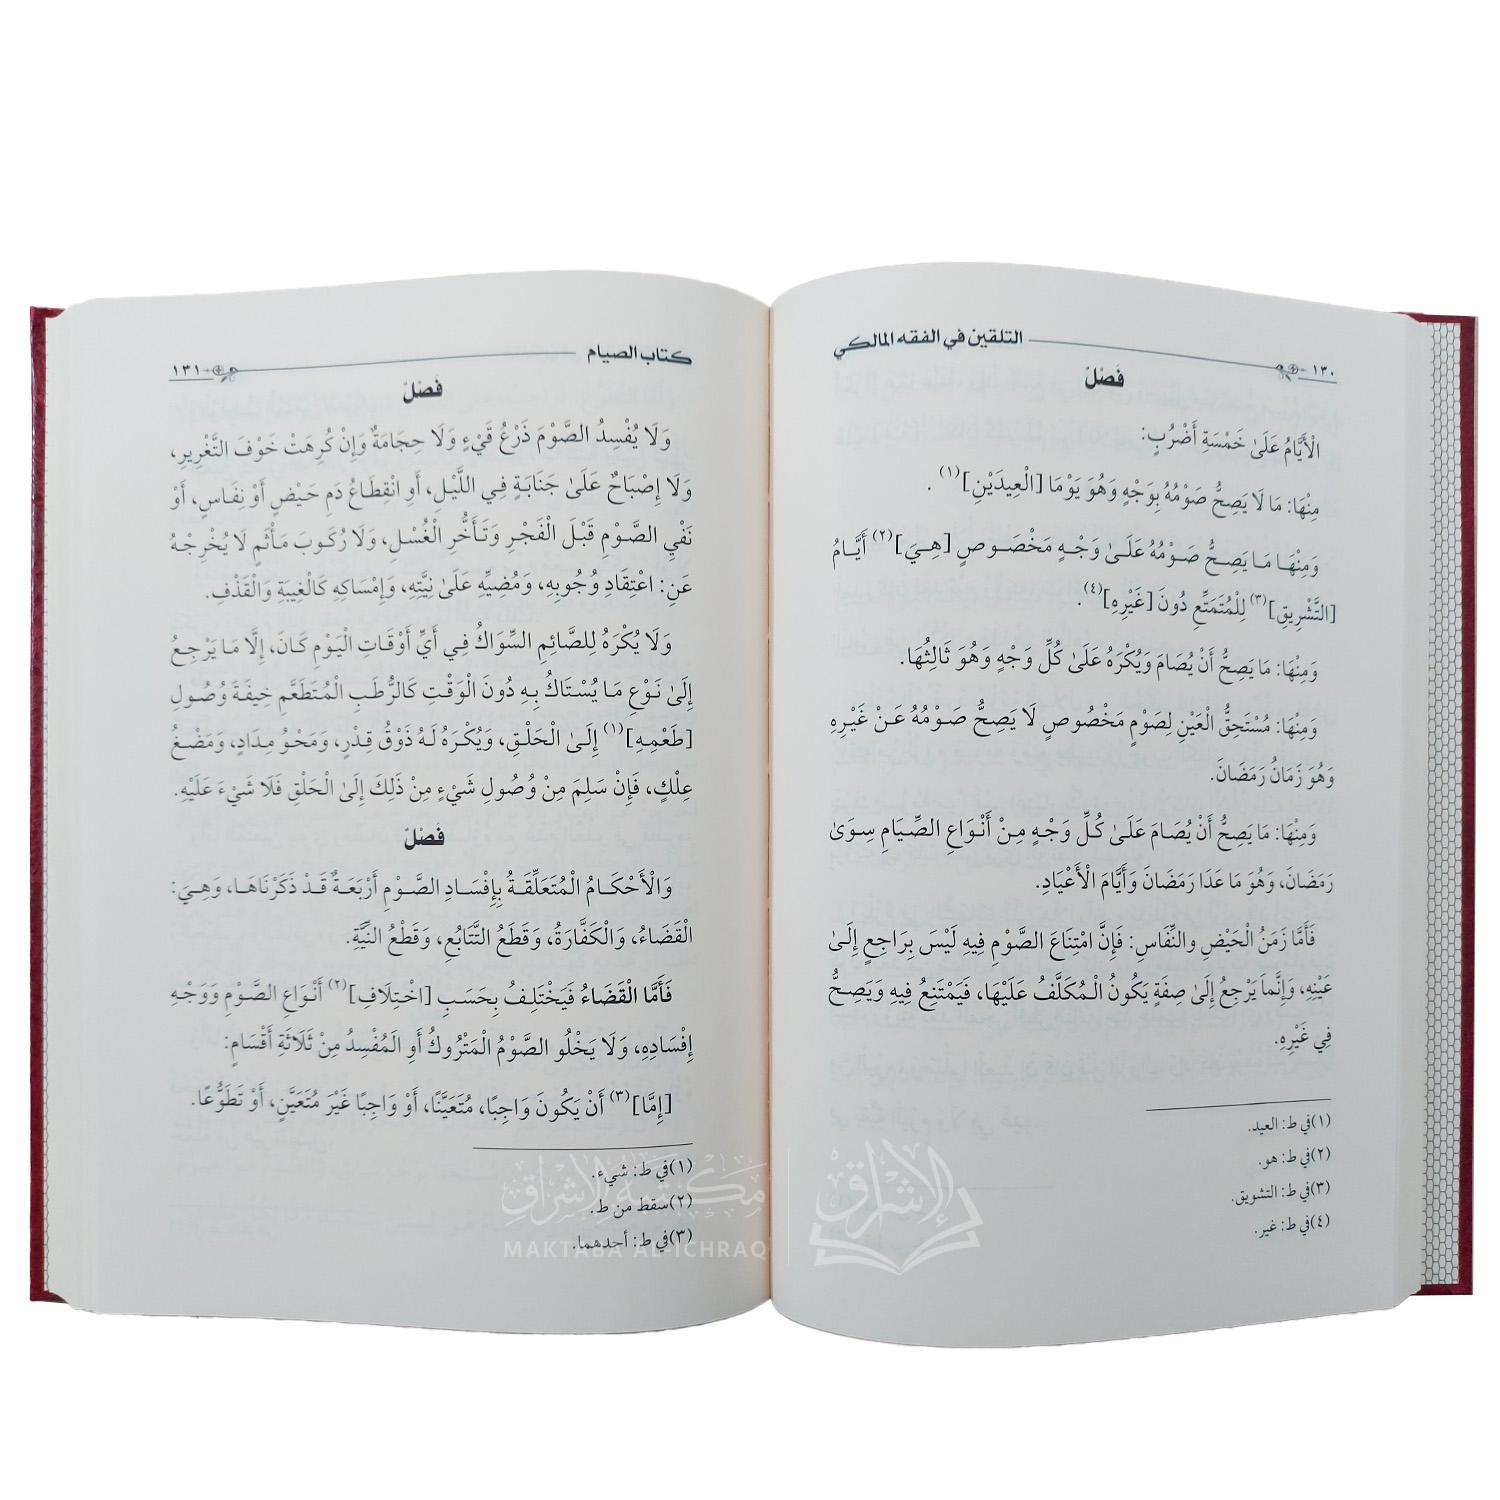 ١٣٠ التلقين في الفقه المالكي
فَصْلٌ
الْأَيَّامُ عَلَىٰ خَمْسَةِ أَضْرُبٍ:
مِنْهَا: مَا لَا يَصِحُّ صَوْمُهُ بِوَجْهٍ وَهُوَ يَوْمَا [الْعِيدَيْنِ](١).
وَمِنْهَا مَا يَصِحُّ صَوْمُهُ عَلَىٰ وَجْهٍ مَخْصُوصٍ [هِيَ](٢) أَيَّامُ
[التَّشْرِيقِ](٣) لِلْمُتَمَتِّعِ دُونَ [غَيْرِهِ](٤).
وَمِنْهَا: مَا يَصِحُّ أَنْ يُصَامَ وَيُكْرَهُ عَلَىٰ كُلِّ وَجْهٍ وَهُوَ ثَالِثُهَا.
وَمِنْهَا: مُسْتَحِقُّ الْعَيْنِ لِصَوْمٍ مَخْصُوصٍ لَا يَصِحُّ صَوْمُهُ عَنْ غَيْرِهِ
وَهُوَ زَمَانُ رَمَضَانَ.
وَمِنْهَا: مَا يَصِحُّ أَنْ يُصَامَ عَلَىٰ كُلِّ وَجْهٍ مِنْ أَنْوَاعِ الصِّيَامِ سِوَىٰ
رَمَضَانَ، وَهُوَ مَا عَدَا رَمَضَانَ وَأَيَّامَ الْأَعْيَادِ.
فَأَمَّا زَمَنُ الْحَيْضِ والنِّفَاسِ: فَإِنَّ امْتِنَاعَ الصَّوْمِ فِيهِ لَيْسَ بِرَاجِعٍ إِلَىٰ
عَيْنِهِ، وَإِنَّمَا يَرْجِعُ إِلَىٰ صِفَةٍ يَكُونُ الْمُكَلَّفُ عَلَيْهَا، فَيَمْتَنِعُ فِيهِ وَيَصِحُّ
فِي غَيْرِهِ.
(١) في ط: العيد.
(٢) في ط: هو.
(٣) في ط: التشويق.
(٤) في ط: غير.
كتاب الصيام ١٣١
فَصْلٌ
وَلَا يُفْسِدُ الصَّوْمَ ذَرْعُ قَيْءٍ وَلَا حِجَامَةٌ وَإِنْ كُرِهَتْ خَوْفَ التَّغْرِيرِ،
وَلَا إِصْبَاحٌ عَلَىٰ جَنَابَةٍ فِي اللَّيْلِ، أَوِ انْقِطَاعُ دَمِ حَيْضٍ أَوْ نِفَاسٍ، أَوْ
نَفْيِ الصَّوْمِ قَبْلَ الْفَجْرِ وَتَأَخُّرِ الْغُسْلِ، وَلَا رُكُوبَ مَأْثَمٍ لَا يُخْرِجُهُ
عَنِ: اعْتِقَادِ وُجُوبِهِ، وَمُضِيِّهِ عَلَىٰ نِيَّتِهِ، وَإِمْسَاكِهِ كَالْغِيبَةِ وَالْقَذْفِ.
وَلَا يُكْرَهُ لِلصَّائِمِ السِّوَاكُ فِي أَيِّ أَوْقَاتِ الْيَوْمِ كَانَ، إِلَّا مَا يَرْجِعُ
إِلَىٰ نَوْعِ مَا يُسْتَاكُ بِهِ دُونَ الْوَقْتِ كَالرُّطَبِ الْمُتَطَعَّمِ خِيفَةَ وُصُولِ
[طَعْمِهِ](١) إِلَىٰ الْحَلْقِ، وَيُكْرَهُ لَهُ ذَوْقُ قِدْرٍ، وَمَحْوُ مِدَادٍ، وَمَضْغُ
عِلْكٍ، فَإِنْ سَلِمَ مِنْ وُصُولِ شَيْءٍ مِنْ ذَلِكَ إِلَىٰ الْحَلْقِ فَلَا شَيْءَ عَلَيْهِ.
فَصْلٌ
وَالْأَحْكَامُ الْمُتَعَلِّقَةُ بِإِفْسَادِ الصَّوْمِ أَرْبَعَةٌ قَدْ ذَكَرْنَاهَا، وَهِيَ:
الْقَضَاءُ، وَالْكَفَّارَةُ، وَقَطْعُ التَّتَابُعِ، وَقَطْعُ النِّيَّةِ.
فَأَمَّا الْقَضَاءُ فَيَخْتَلِفُ بِحَسَبِ [اخْتِلَافِ](٢) أَنْوَاعِ الصَّوْمِ وَوَجْهِ
إِفْسَادِهِ، وَلَا يَخْلُو الصَّوْمُ الْمَتْرُوكُ أَوِ المُفْسِدُ مِنْ ثَلَاثَةِ أَقْسَامٍ:
[إِمَّا](٣) أَنْ يَكُونَ وَاجِبًا، مُتَعَيَّنًا، أَوْ وَاجِبًا غَيْرَ مُتَعَيَّنٍ، أَوْ تَطَوُّعًا.
(١) في ط: شيء.
(٢) سقط من ط.
(٣) في ط: أحدهما.
مكتبة الإشراق
MAKTABA AL-ICHRAQ
الإشراق